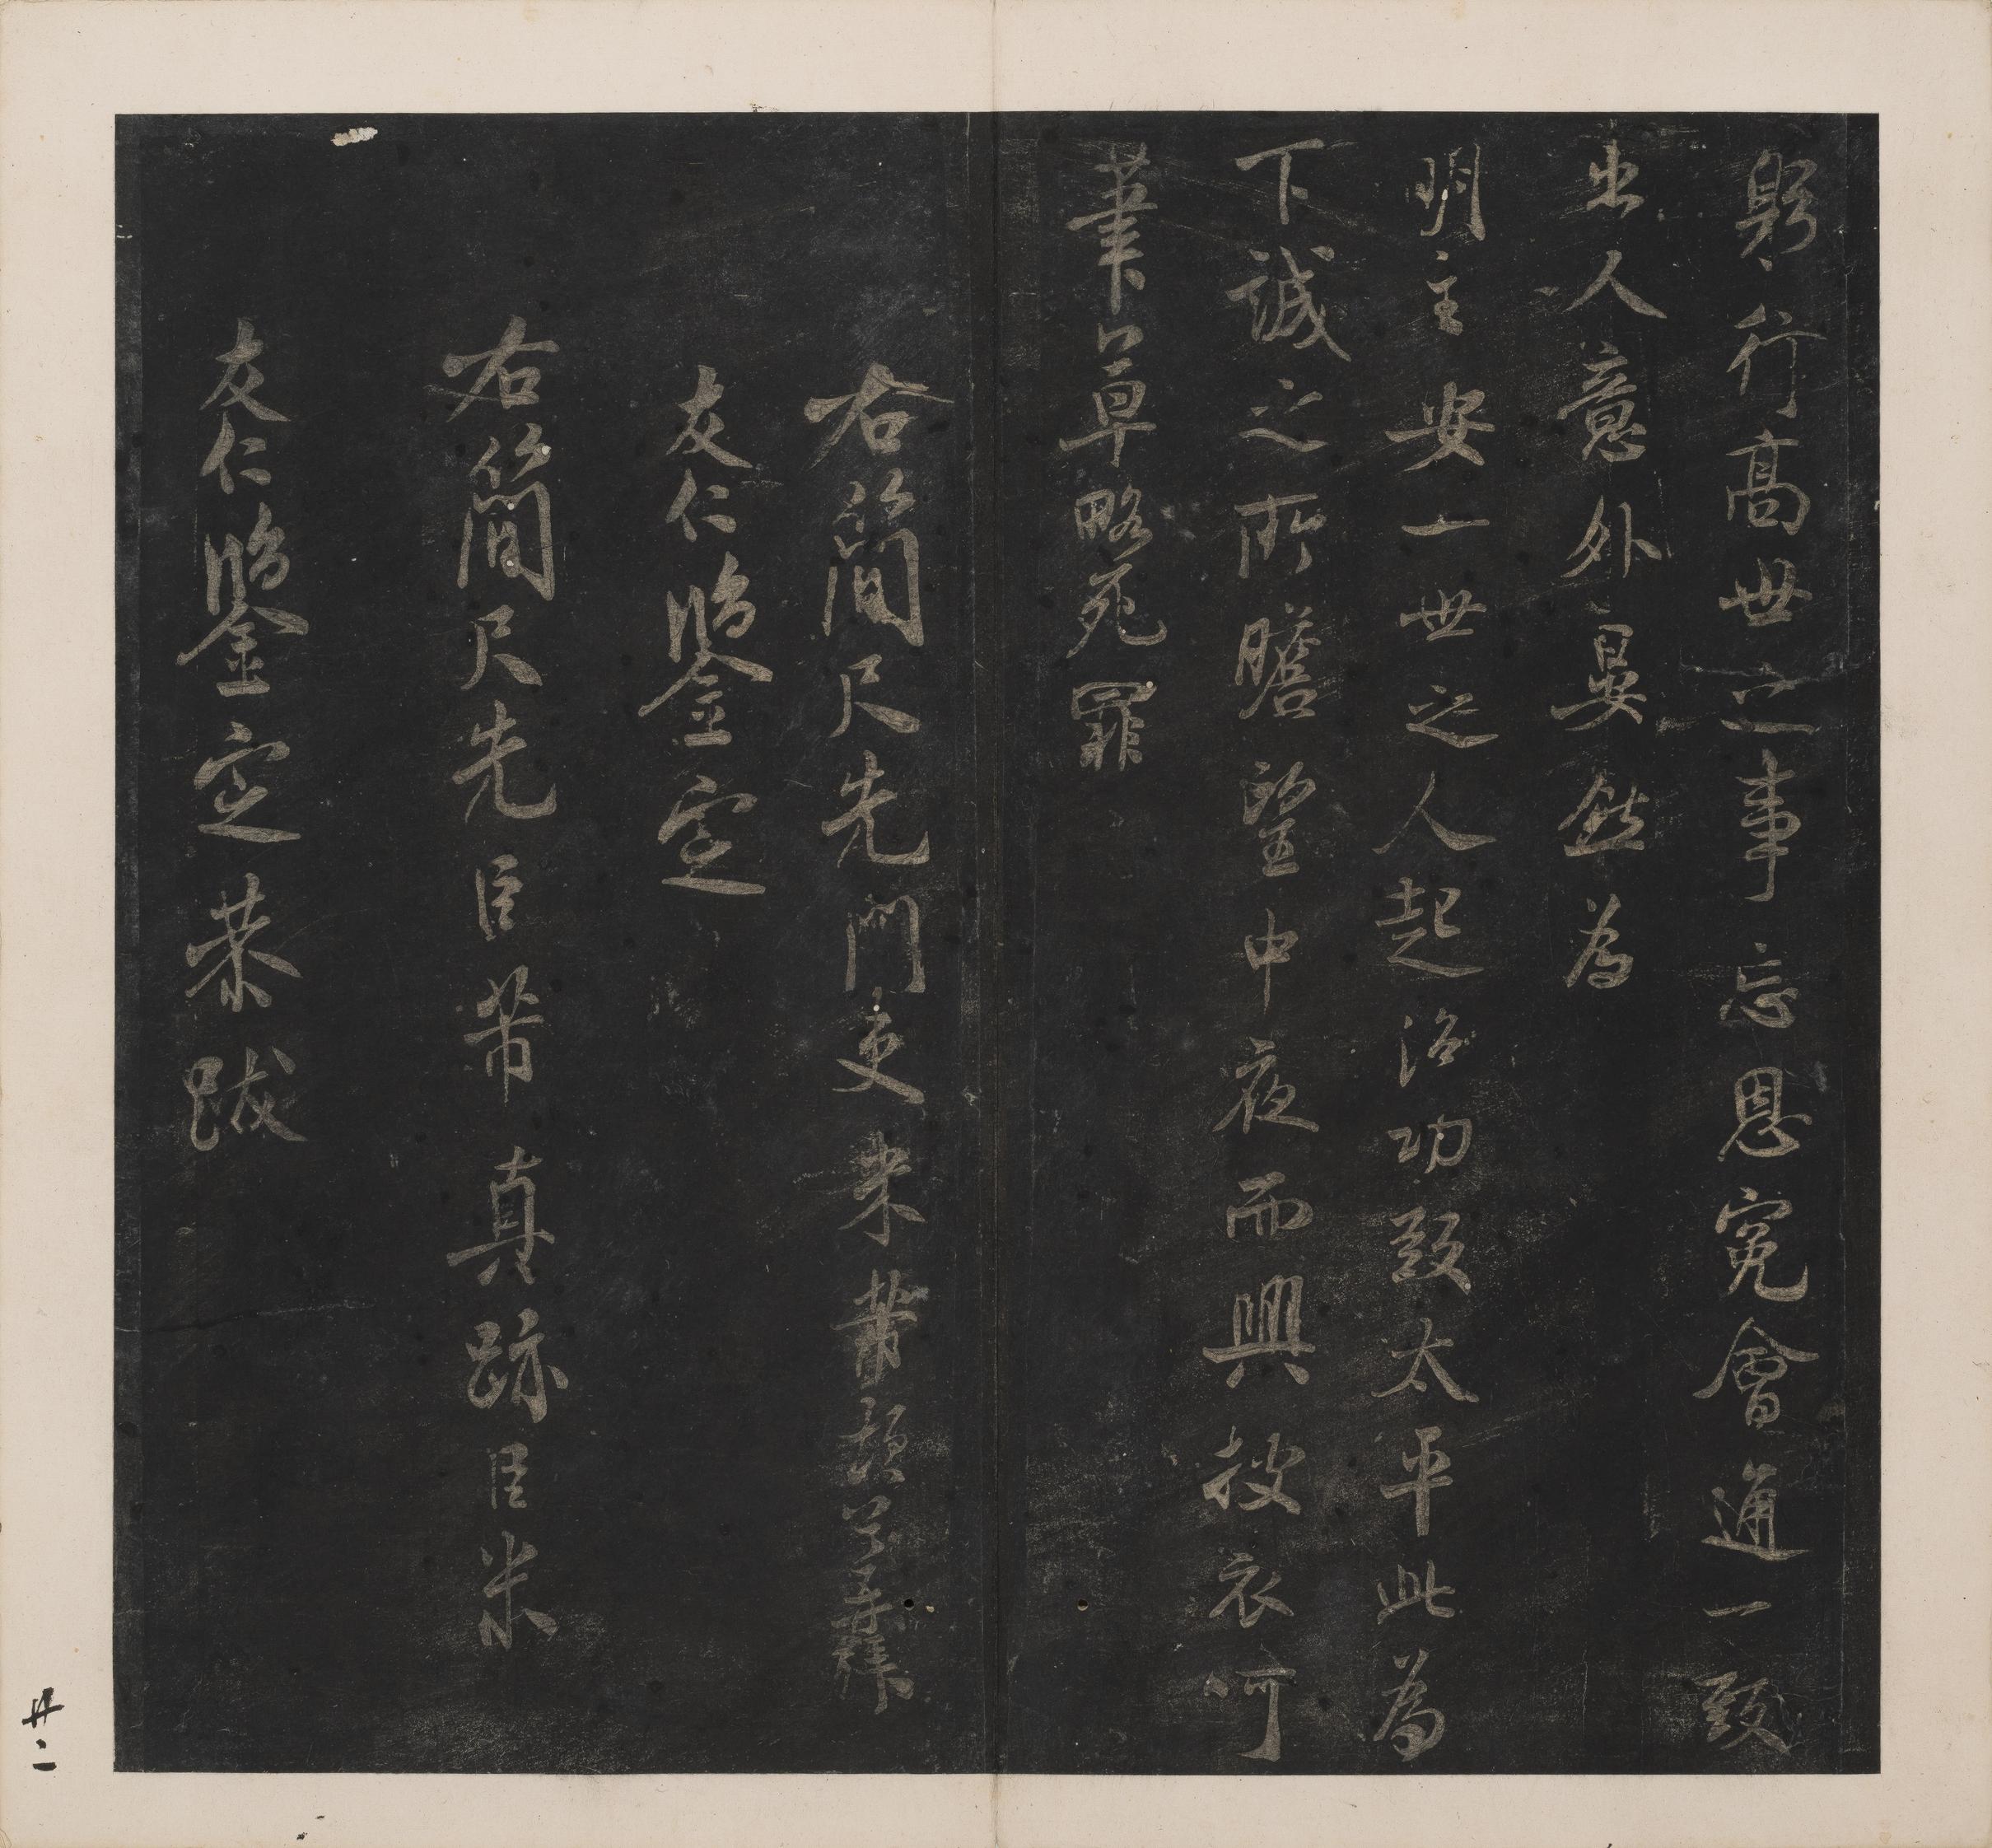 躬行高世之事忘恩冤會通一致
出人意外晏然為
明主安一世之人起洽功致太平此為
下誠之所瞻望中夜而興披衣呵
筆草略死罪
右簡尺先門吏米芾
友仁鑒定
右簡尺先臣芾真跡臣米
友仁鑒定恭跋
廿二